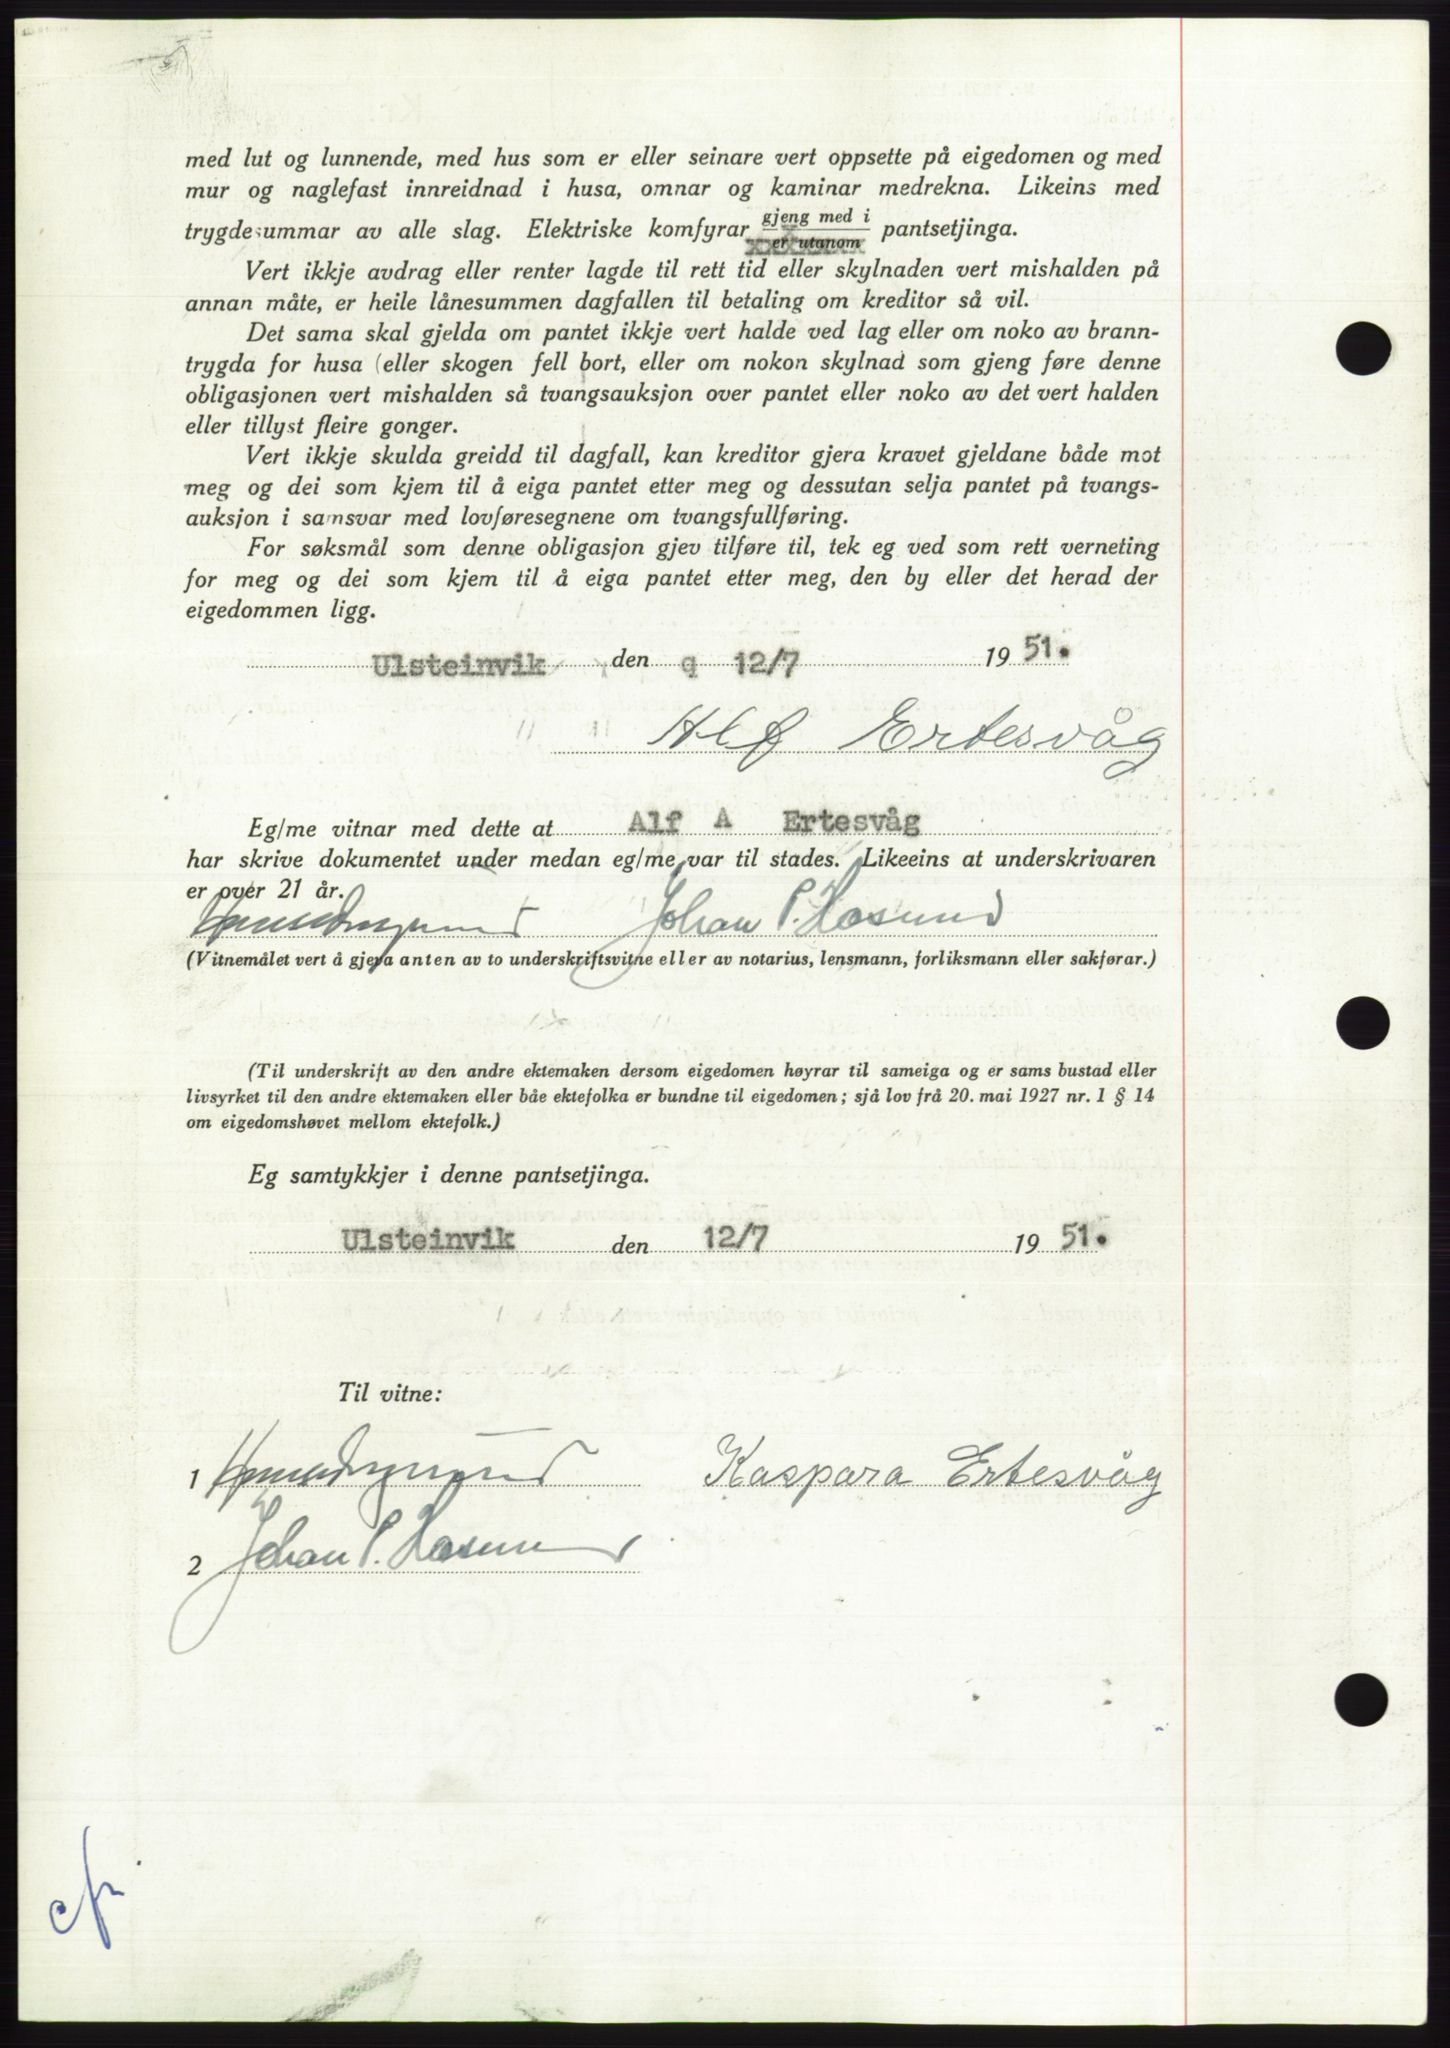 med lut og lunnende, med hus som er eller seinare vert oppsette på eigedomen og med
mur og naglefast innreidnad i husa, omnar og kaminar medrekna. Likeins med
trygdesummar av alle slag. Elektriske komfyrar gjeng med i pantsetjinga.
er utanom
Vert ikkje avdrag eller renter lagde til rett tid eller skylnaden vert mishalden på
annan måte, er heile lånesummen dagfallen til betaling om kreditor så vil.
Det sama skal gjelda om pantet ikkje vert halde ved lag eller om noko av brann-
trygda for husa (eller skogen fell bort, eller om nokon skylnad som gjeng føre denne
obligasjonen vert mishalden så tvangsauksjon over pantet eller noko av det vert halden
eller tillyst fleire gonger.
Vert ikkje skulda greidd til dagfall, kan kreditor gjera kravet gjeldane både mot
meg og dei som kjem til å eiga pantet etter meg og dessutan selja pantet på tvangs-
auksjon i samsvar med lovføresegnene om tvangsfullføring.
For søksmål som denne obligasjon gjev tilføre til, tek eg ved som rett verneting
for meg og dei som kjem til å eiga pantet etter meg, den by eller det herad der
eigedommen ligg.
Ulsteinvik den q 12/7 19 51.
Alf Ertesvåg
Eg/me vitnar med dette at Alf A Ertesvåg
har skrive dokumentet under medan eg/me var til stades. Likeeins at underskrivaren
er over 21 år.
Johan P. Hasund
(Vitnemålet vert å gjera anten av to underskriftsvitne eller av notarius, lensmann, forliksmann eller sakførar.)
(Til underskrift av den andre ektemaken dersom eigedomen høyrar til sameiga og er sams bustad eller
livsyrket til den andre ektemaken eller båe ektefolka er bundne til eigedomen; sjå lov frå 20. mai 1927 nr. 1 § 14
om eigedomshøvet mellom ektefolk.)
Eg samtykkjer i denne pantsetjinga.
Ulsteinvik den 12/7 19 51.
Til vitne:
1 Kaspara Ertesvåg
2 Johan P. Hasund